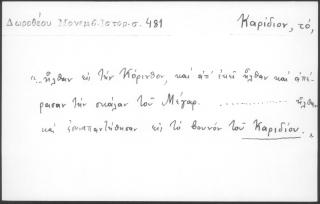 Δωροθέου Μονεμβ. Ιστορ. σ. 481
Καρίδιον, τό,
„.. ἦλθαν εἰς τὴν Κόρινθον, καὶ ἀπ' ἐκεῖ ἦλθαν καὶ ἀπέ-
ρασαν τὴν σκάλαν τοῦ Μέγαρ. .............. ἦλθαν
καὶ ἐσυναπαντήθησαν εἰς τὸ βουνὸν τοῦ Καριδίου. „